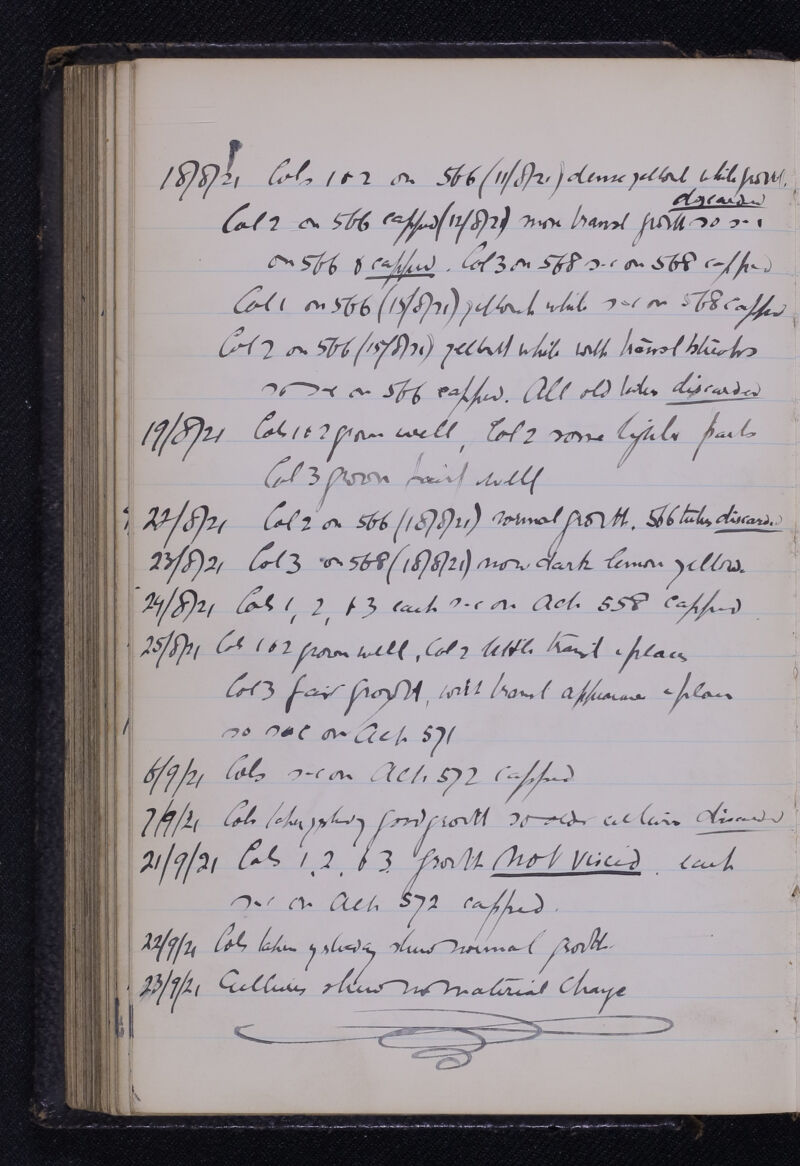 18/8/21 Cols 1 & 2 on 566 (11/8/21) dense yellowish white growth.
discarded
Col 2 on 566 capped (12/8/21) more transl growth so s-c
on 566 & capped. Col 3 on 568 s-c on 568 capped
Col 1 on 566 (15/8/21) yellowish white s-c on 568 capped
Col 2 on 566 (15/8/21) yellowish white with transl streaks
so s-c on 566 capped. All old tubes discarded
19/8/21 Cols 1 & 2 grown well, Col 2 some lighter parts
Col 3 grown fairly well
22/8/21 Col 2 on 566 (18/8/21) normal growth. 566 tubes discarded
23/8/21 Col 3 on 568 (18/8/21) now dark lemon yellow.
24/8/21 Cols 1, 2, & 3 each s-c on Ach 558 capped
25/8/21 Cols 1 & 2 grown well, Col 2 little transl places
Col 3 fair growth, with transl appearance places
so s-c on Ach 571
6/9/21 Cols s-c on Ach 572 capped
7/9/21 Cols taken yesterday good growth so older cultures discarded
21/9/21 Cols 1, 2, & 3 growth not viscid. each
s-c on Ach 572 capped.
22/9/21 Cols taken yesterday show normal growth.
23/9/21 Cultures show no material change